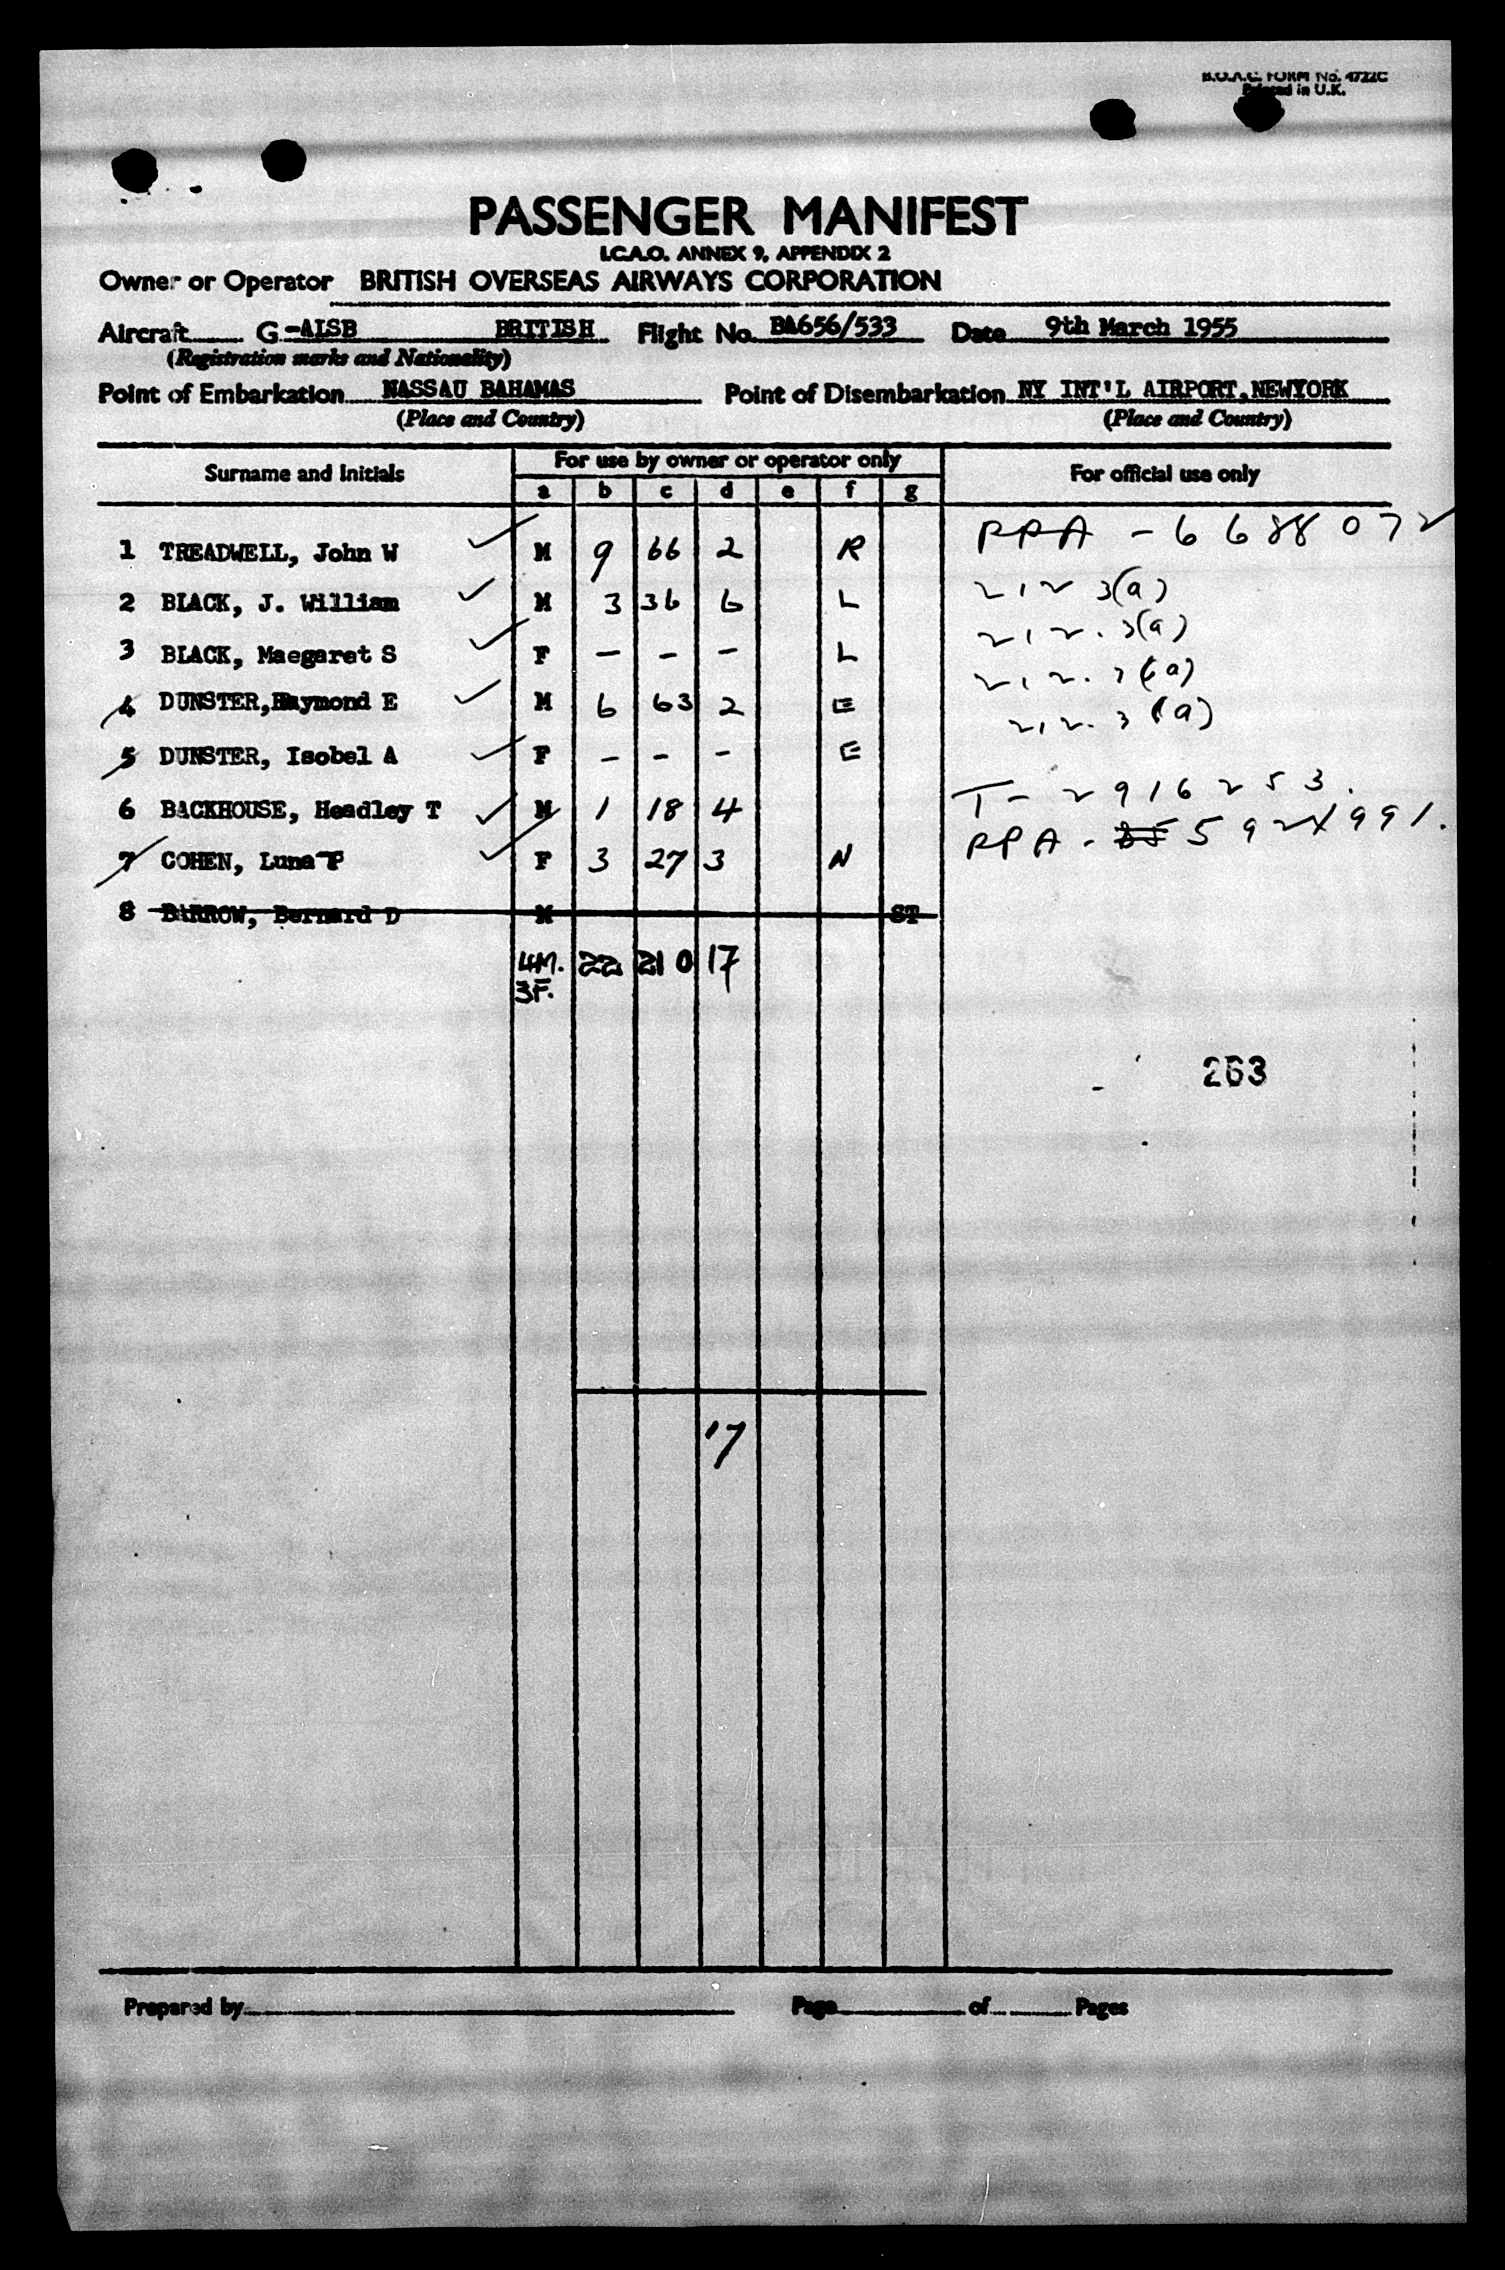 B.O.A.C. FORM No. 4722C
Printed in U.K.
PASSENGER MANIFEST
I.C.A.O. ANNEX 9, APPENDIX 2
Owner or Operator BRITISH OVERSEAS AIRWAYS CORPORATION
Aircraft G-AISB BRITISH Flight No. BA656/533 Date 9th March 1955
(Registration marks and Nationality)
Point of Embarkation NASSAU BAHAMAS Point of Disembarkation NY INT'L AIRPORT, NEWYORK
(Place and Country) (Place and Country)
Surname and Initials For use by owner or operator only For official use only
a b c d e f g
1 TREADWELL, John W M 9 66 2 R PPA - 6688072
2 BLACK, J. William M 3 36 6 L 212 3(a)
3 BLACK, Maegaret S F - - - L 212.3(a)
4 DUNSTER, Raymond E M 6 63 2 E 212.3(a)
5 DUNSTER, Isobel A F - - - E 212.3(a)
6 BACKHOUSE, Headley T M 1 18 4 T-2916253.
7 COHEN, Luna P F 3 27 3 N PPA - 5921991.
8 BARROW, Bernard D M ST
4M. 22 210 17
3F.
263
17
Prepared by Page of Pages